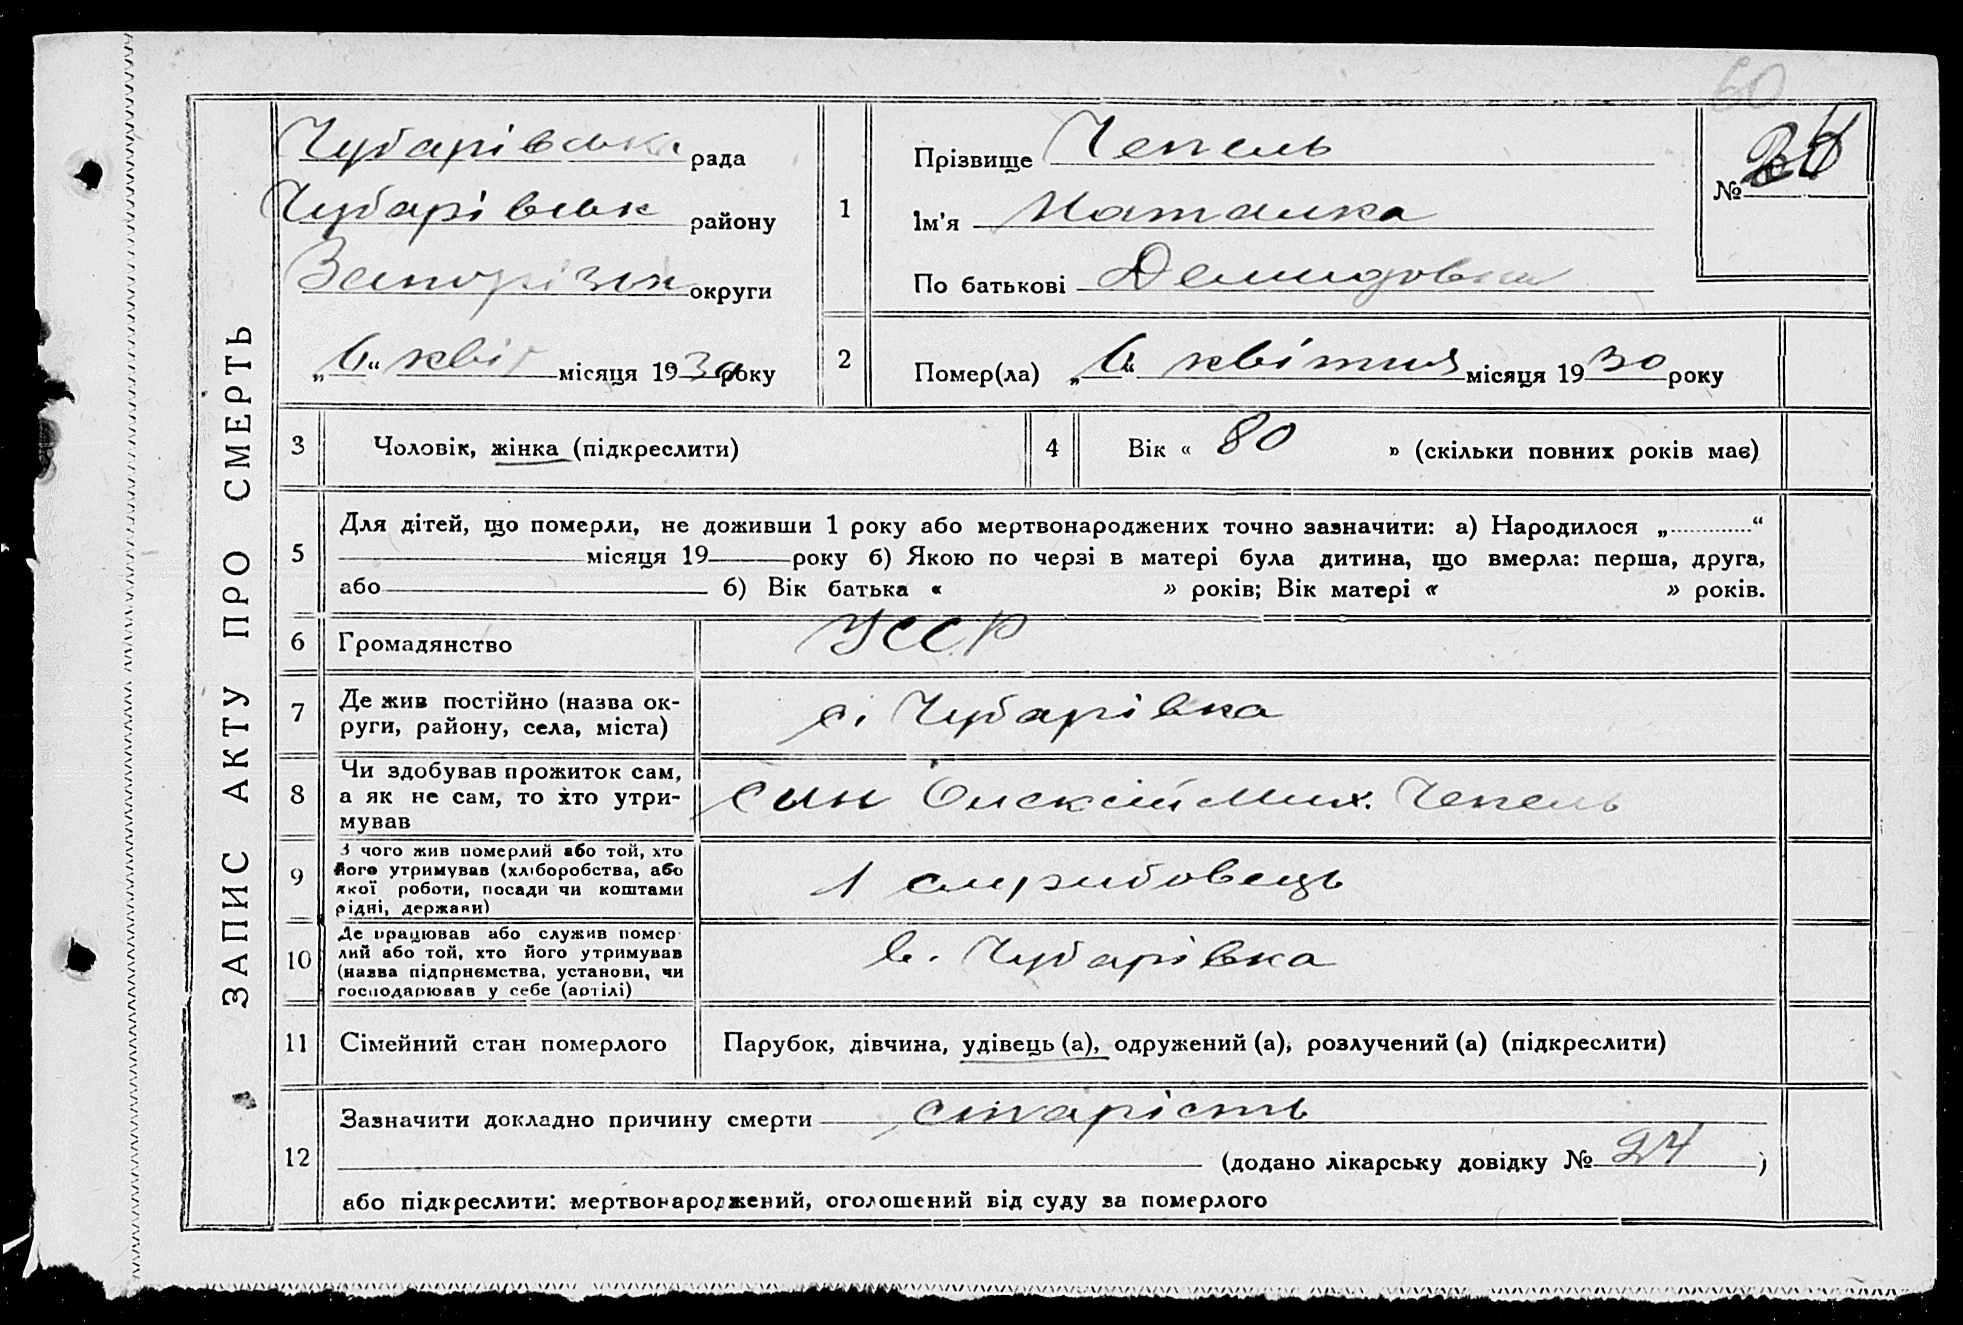 60
ЗАПИС АКТУ ПРО СМЕРТЬ
Чубарівська рада
Чубарівськ району
Запорізьк округи
„6“ квіт місяця 1930 року
1
Прізвище Чепель
Ім'я Наталка
По батькові Демидовна
№
2
Помер(ла) „6“ квітня місяця 1930 року
3 Чоловік, жінка (підкреслити)
4 Вік « 80 » (скільки повних років має)
5
Для дітей, що померли, не доживши 1 року або мертвонароджених точно зазначити: а) Народилося „ “
місяця 19 року б) Якою по черзі в матері була дитина, що вмерла: перша, друга,
або б) Вік батька « » років; Вік матері « » років.
6 Громадянство УССР
7 Де жив постійно (назва ок-
руги, району, села, міста)
с. Чубарівка
8 Чи здобував прожиток сам,
а як не сам, то хто утри-
мував
сын Олексій Мих. Чепель
9 З чого жив померлий або той, хто
його утримував (хліборобства, або
якої роботи, посади чи коштами
рідні, держави)
10 Де працював або служив помер-
лий або той, хто його утримував
(назва підприємства, установи, чи
господарював у себе (артілі)
в. Чубарівка
11 Сімейний стан померлого Парубок, дівчина, удівець (а), одружений (а), розлучений (а) (підкреслити)
12
Зазначити докладно причину смерти старість
(додано лікарську довідку № 24 )
або підкреслити: мертвонароджений, оголошений від суду за померлого